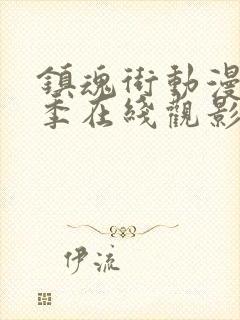 鎮魂街動漫
季在綫觀影
伊流